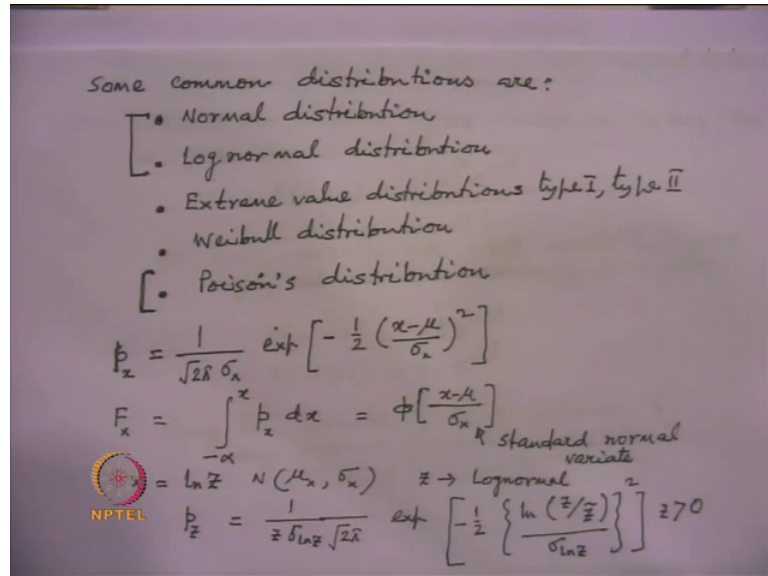 Some common distributions are:
• Normal distribution
• Lognormal distribution
• Extreme value distributions type I, type II
• Weibull distribution
• Poison's distribution
p_x = 1/(√2π σ_x) exp[-1/2 ((x-μ)/σ_x)^2]
F_x = ∫_{-∞}^{x} p_x dx = φ[(x-μ)/σ_x]
standard normal variate
x = ln z N(μ_x, σ_x) z → Lognormal
p_z = 1/(z σ_{ln z} √2π) exp[-1/2 {ln(z/z̃)/σ_{ln z}}^2] z>0
NPTEL